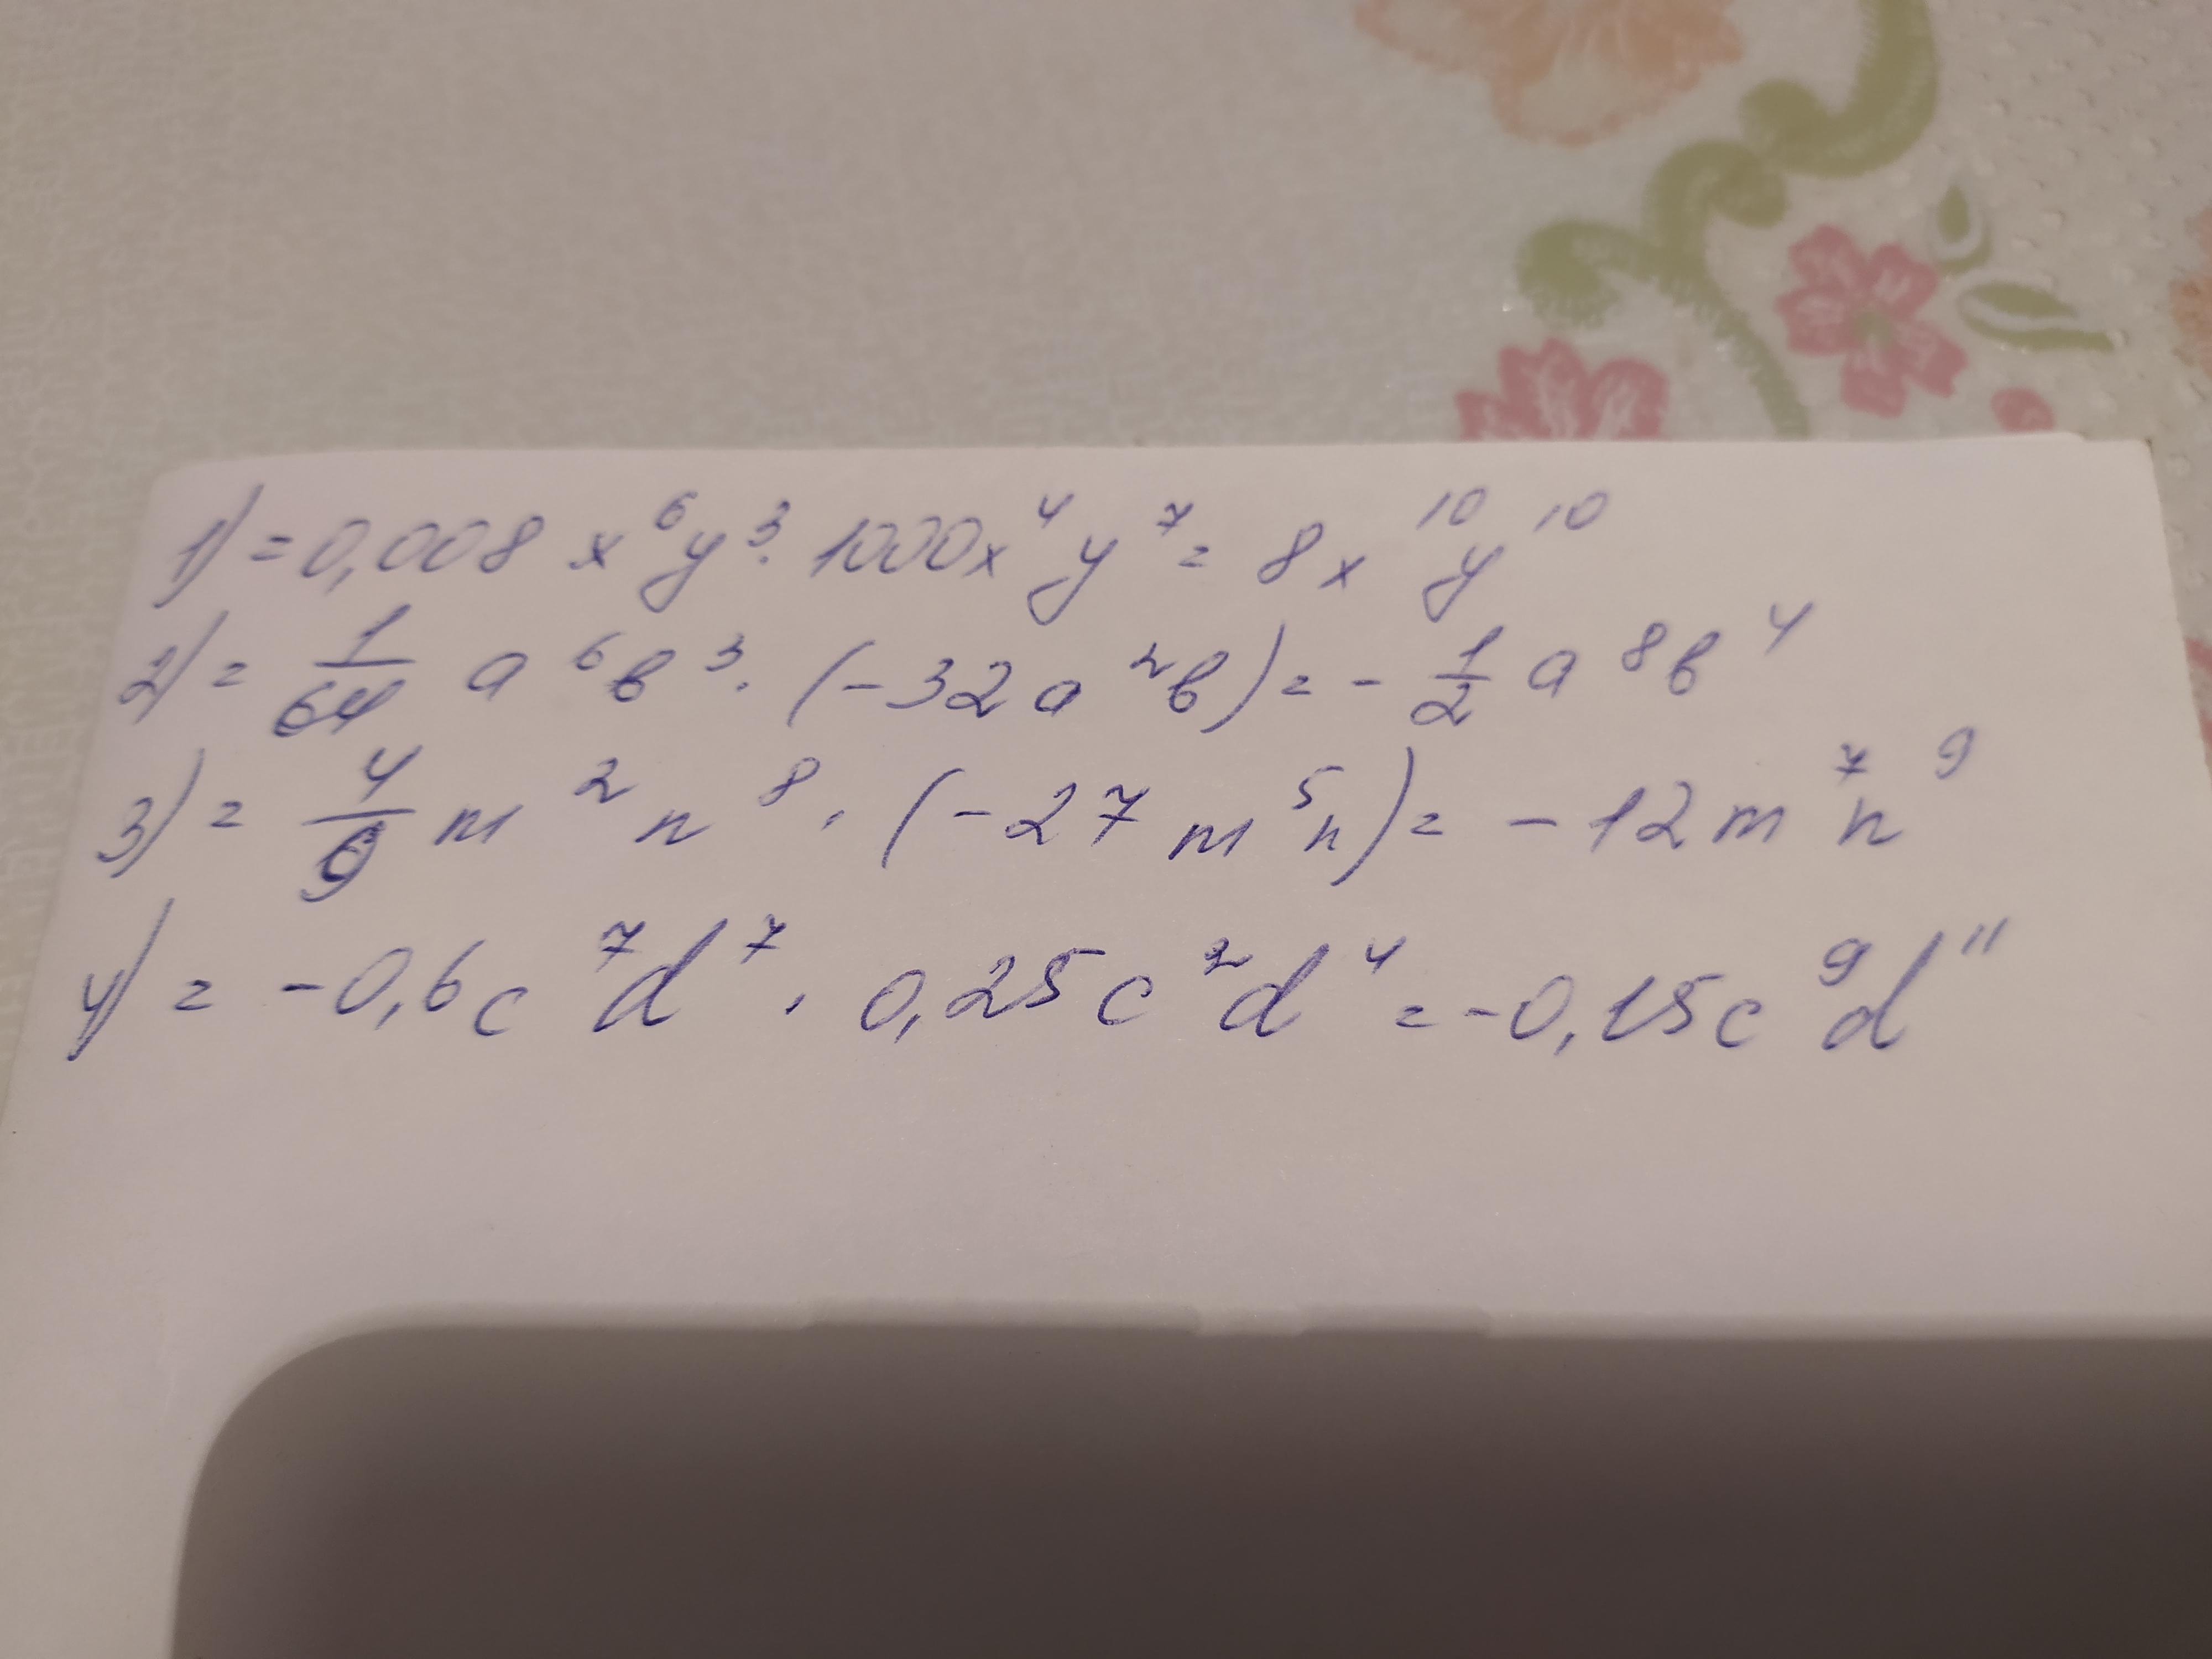 1) = 0,008 x⁶y³ · 1000x⁴y⁷ = 8x¹⁰y¹⁰
2) = 1/64 a⁶b³ · (-32a²b) = - 1/2 a⁸b⁴
3) = 4/9 m²n⁸ · (-27m⁵n) = -12m⁷n⁹
4) = -0,6c⁷d⁷ · 0,25c²d⁴ = -0,15c⁹d¹¹